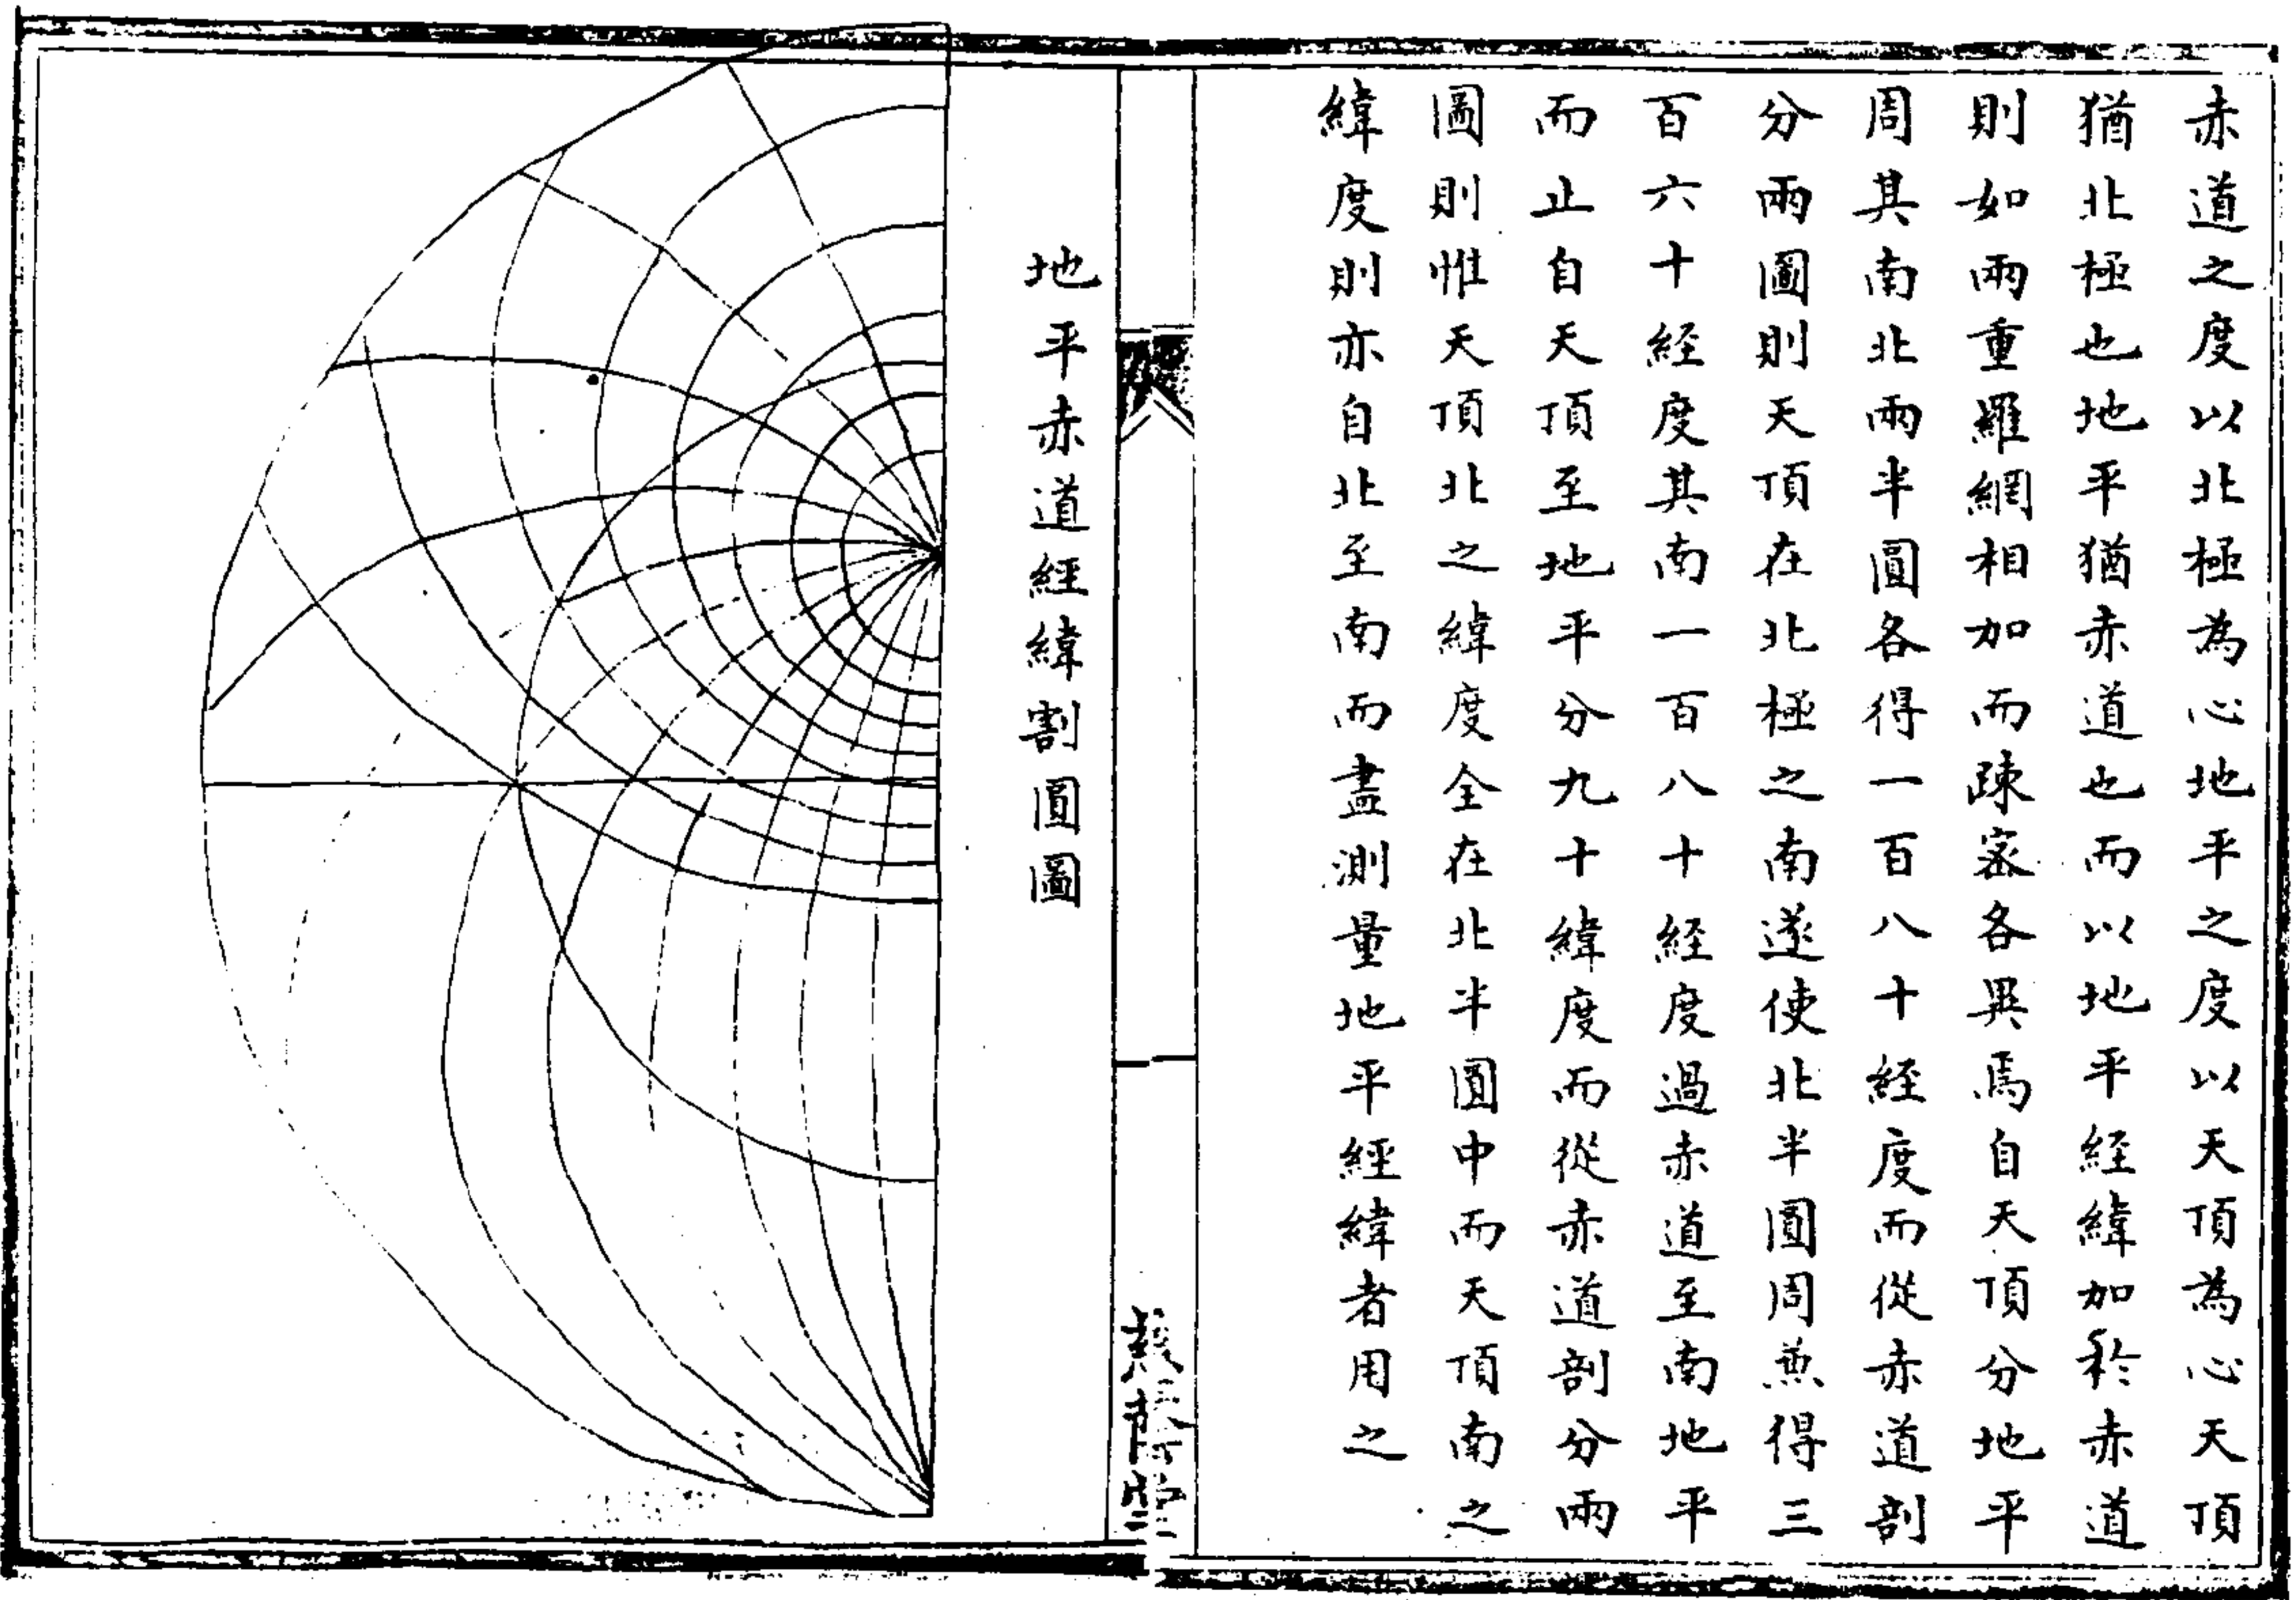 赤道之度以北極為心地平之度以天頂為心天頂
猶北極也地平猶赤道也而以地平經緯加於赤道
則如兩重羅網相加而疎宻各異焉自天頂分地平
周其南北兩半圓各得一百八十経度而從赤道剖
分兩圖則天頂在北極之南遂使北半圓周兼得三
百六十経度其南一百八十経度過赤道至南地平
而止自天頂至地平分九十緯度而從赤道剖分兩
圖則惟天頂北之緯度全在北半圓中而天頂南之
緯度則亦自北至南而盡測量地平經緯者用之
地平赤道經緯割圓圖